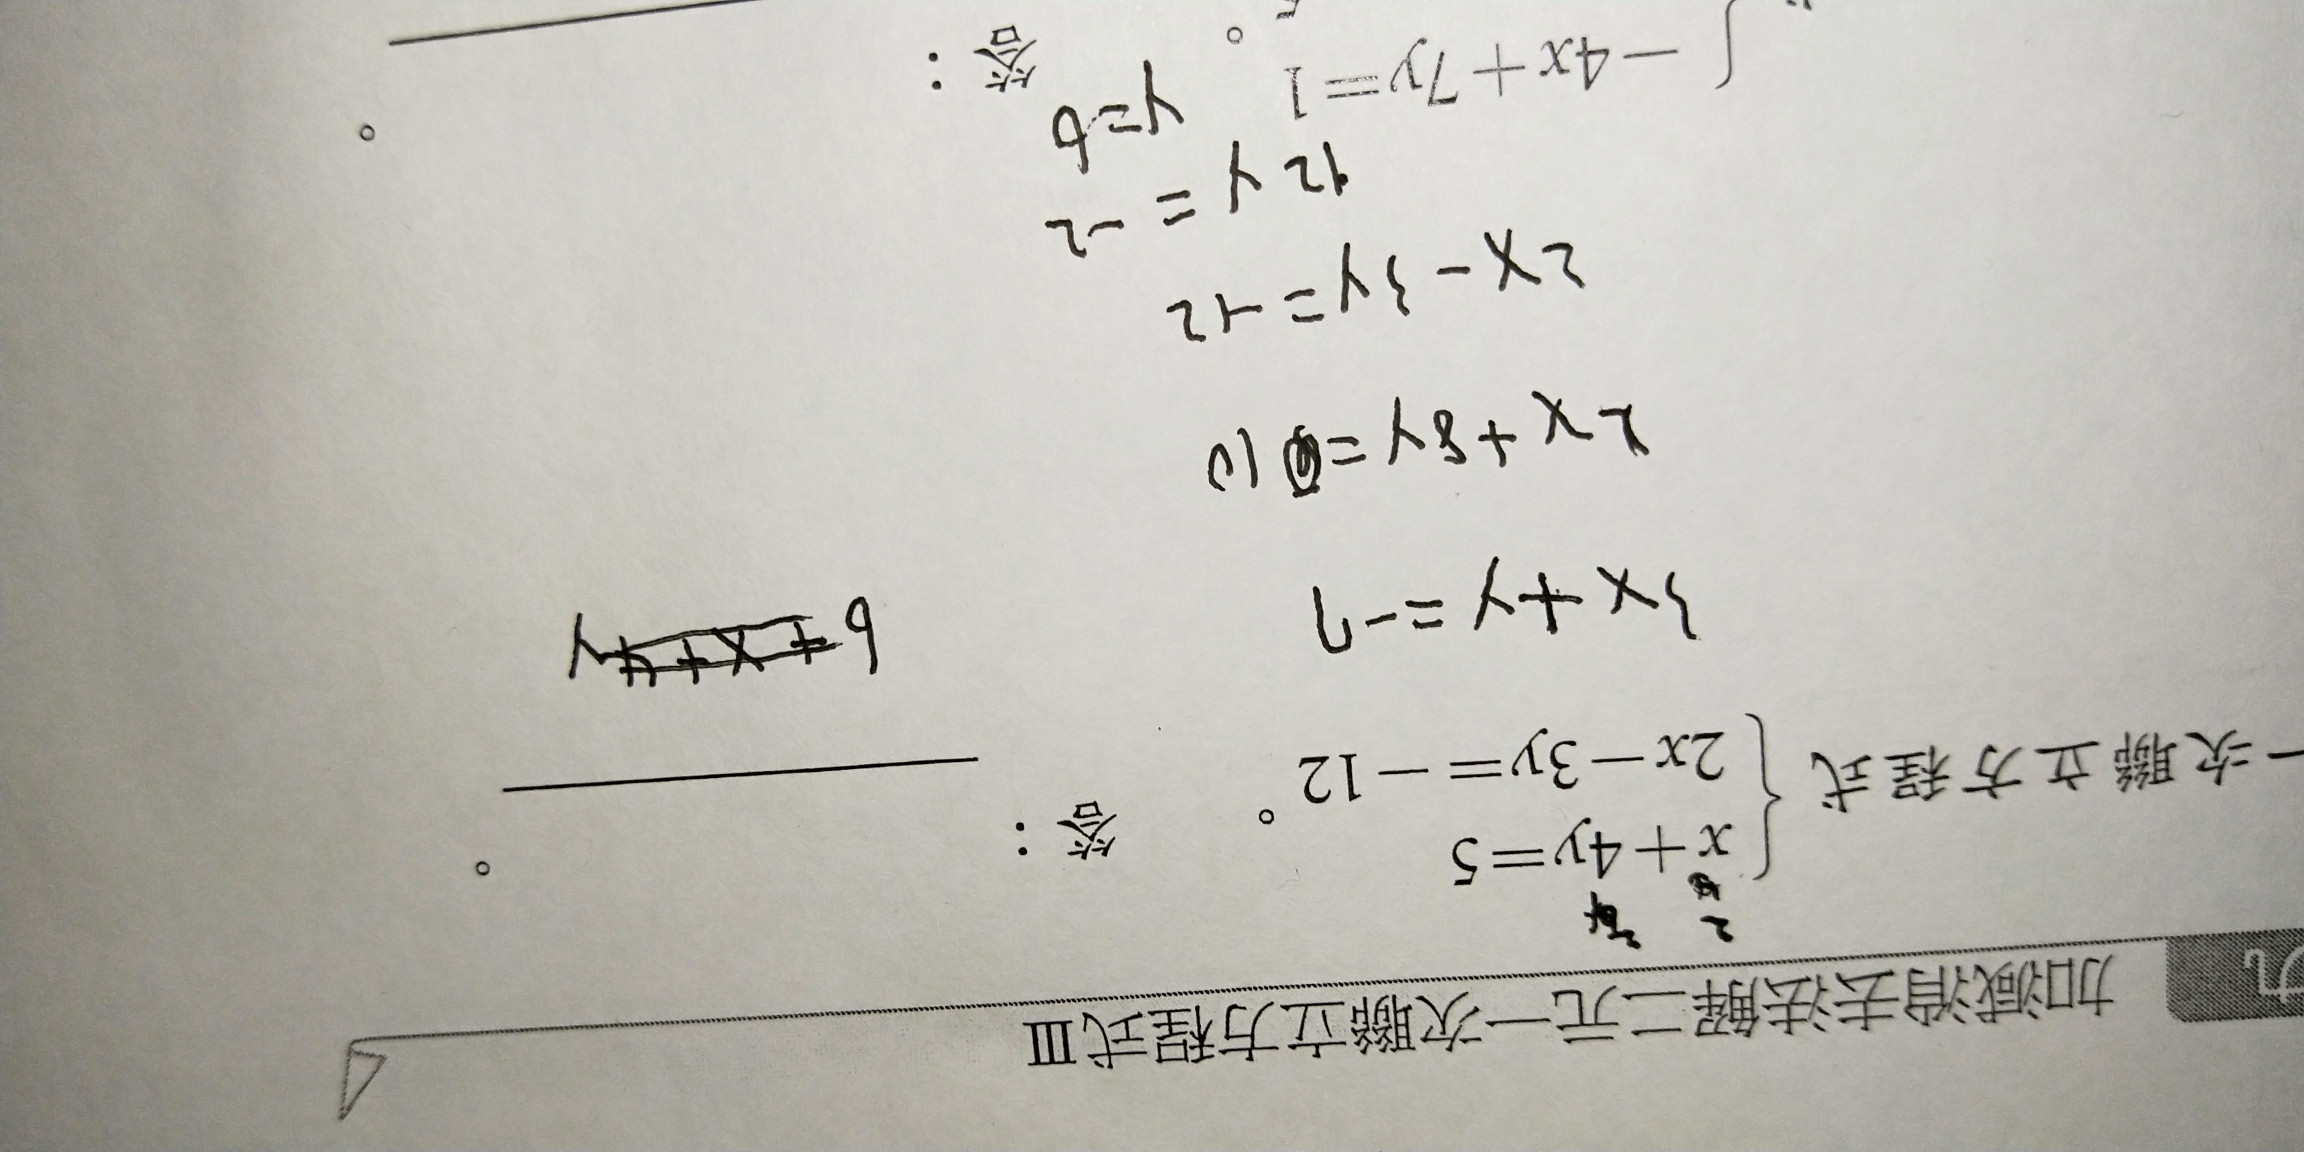 九 加減消去法解二元一次聯立方程式Ⅲ
2
一次聯立方程式 { x+4y=5
2x-3y=-12 。 答：＿＿＿＿＿＿。
3x+y=-7
2x+8y=10
2x-3y=-12
12y=-2
y=6
-4x+7y=1 。 答：＿＿＿＿＿＿。